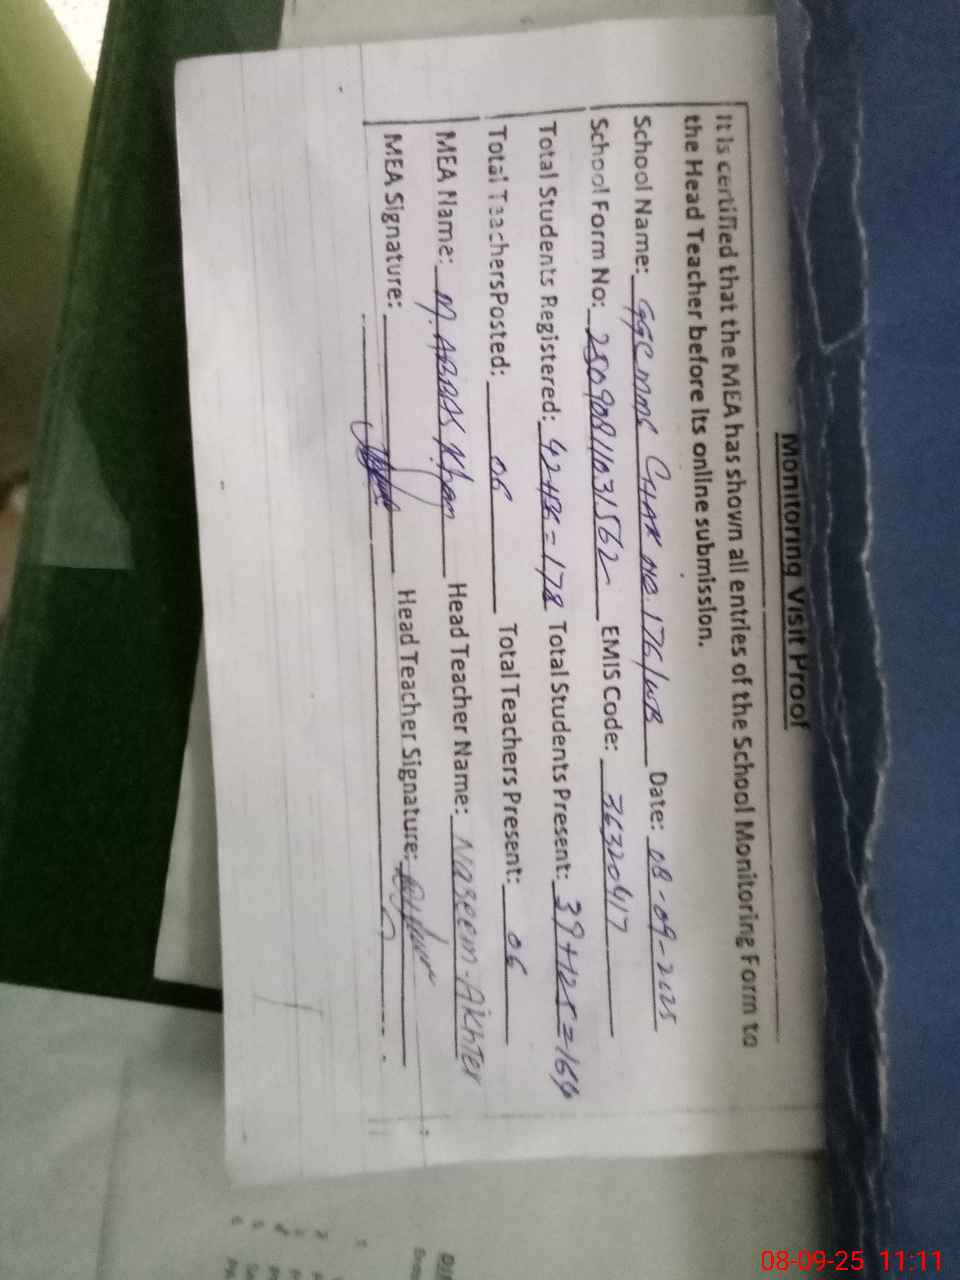 Monitoring Visit Proof
It is certified that the MEA has shown all entries of the School Monitoring Form to
the Head Teacher before its online submission.
School Name: GGCMMS CHAK NO. 176/WB Date: 08-09-2025
School Form No: 25090811031562 EMIS Code: 36320417
Total Students Registered: 42+136=178 Total Students Present: 39+125=164
Total Teachers Posted: 06 Total Teachers Present: 06
MEA Name: M. ABBAS Khan Head Teacher Name: Naseem Akhter
MEA Signature: Head Teacher Signature:
08-09-25 11:11